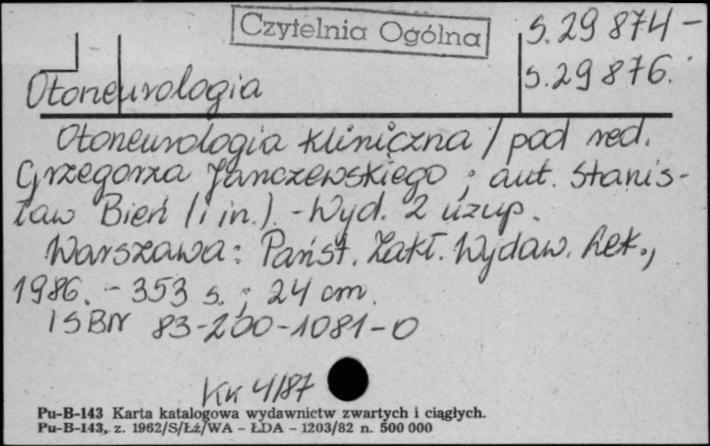 Czytelnia Ogólna
S.29 874 -
S.29 876.
Otoneurologia
Otoneurologia kliniczna / pod red.
Grzegorza Janczewskiego ; aut. Stanis-
ław Bień [i in.]. - Wyd. 2 uzup.
Warszawa : Państ. Zakł. Wydaw. Lek.,
1986. - 353 s. ; 24 cm.
ISBN 83-200-1081-0
Kk 4/87
Pu-B-143 Karta katalogowa wydawnictw zwartych i ciągłych.
Pu-B-143, z. 1962/S/Łź/WA - ŁDA - 1203/82 n. 500 000